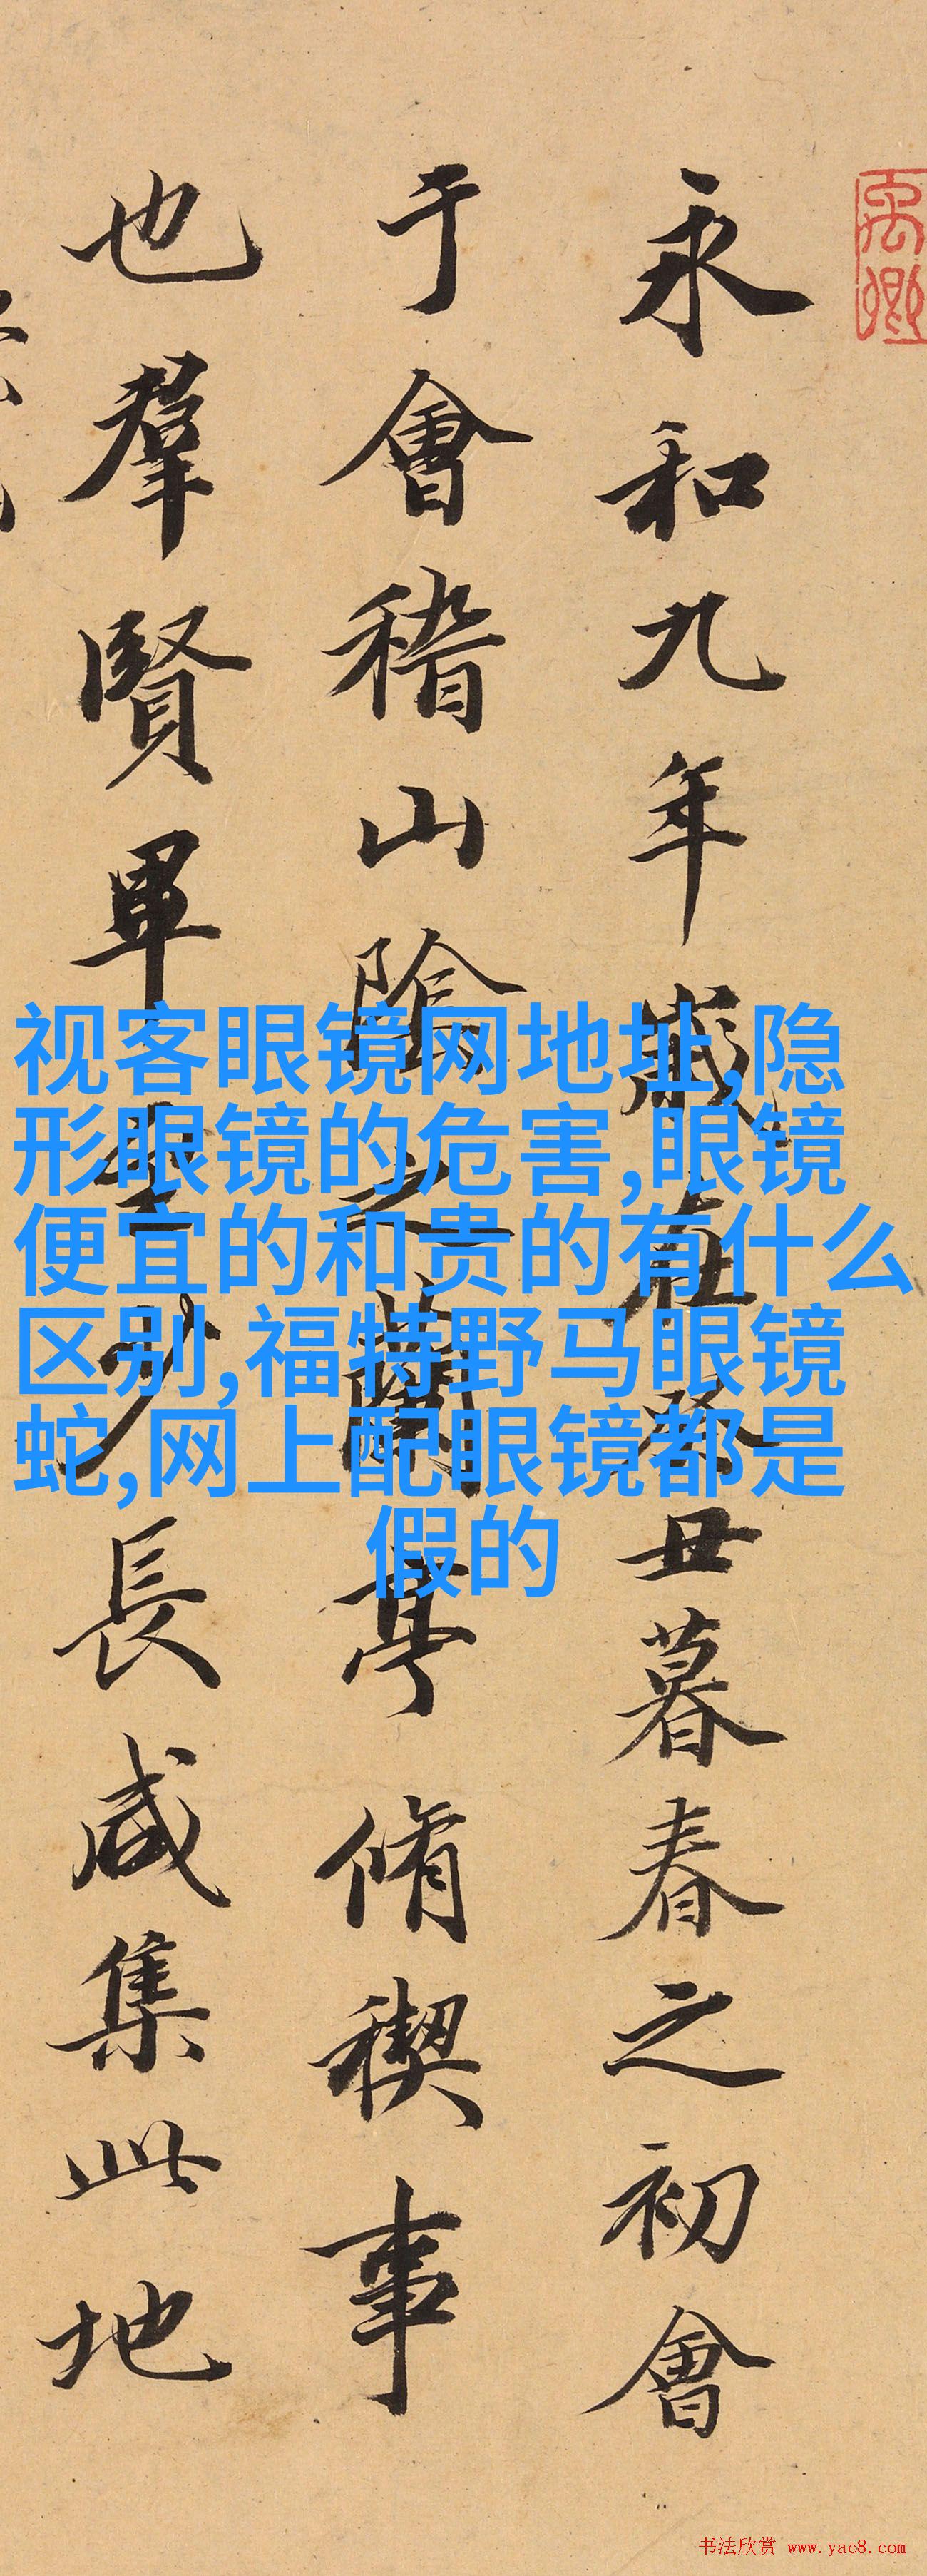 禹卿
永和九年歲在癸丑暮春之初會
于會稽山陰之蘭亭脩稧事
也羣賢畢至少長咸集此地
视客眼镜网地址,隐
形眼镜的危害,眼镜
便宜的和贵的有什么
区别,福特野马眼镜
蛇,网上配眼镜都是
假的
书法欣赏 www.yac8.com